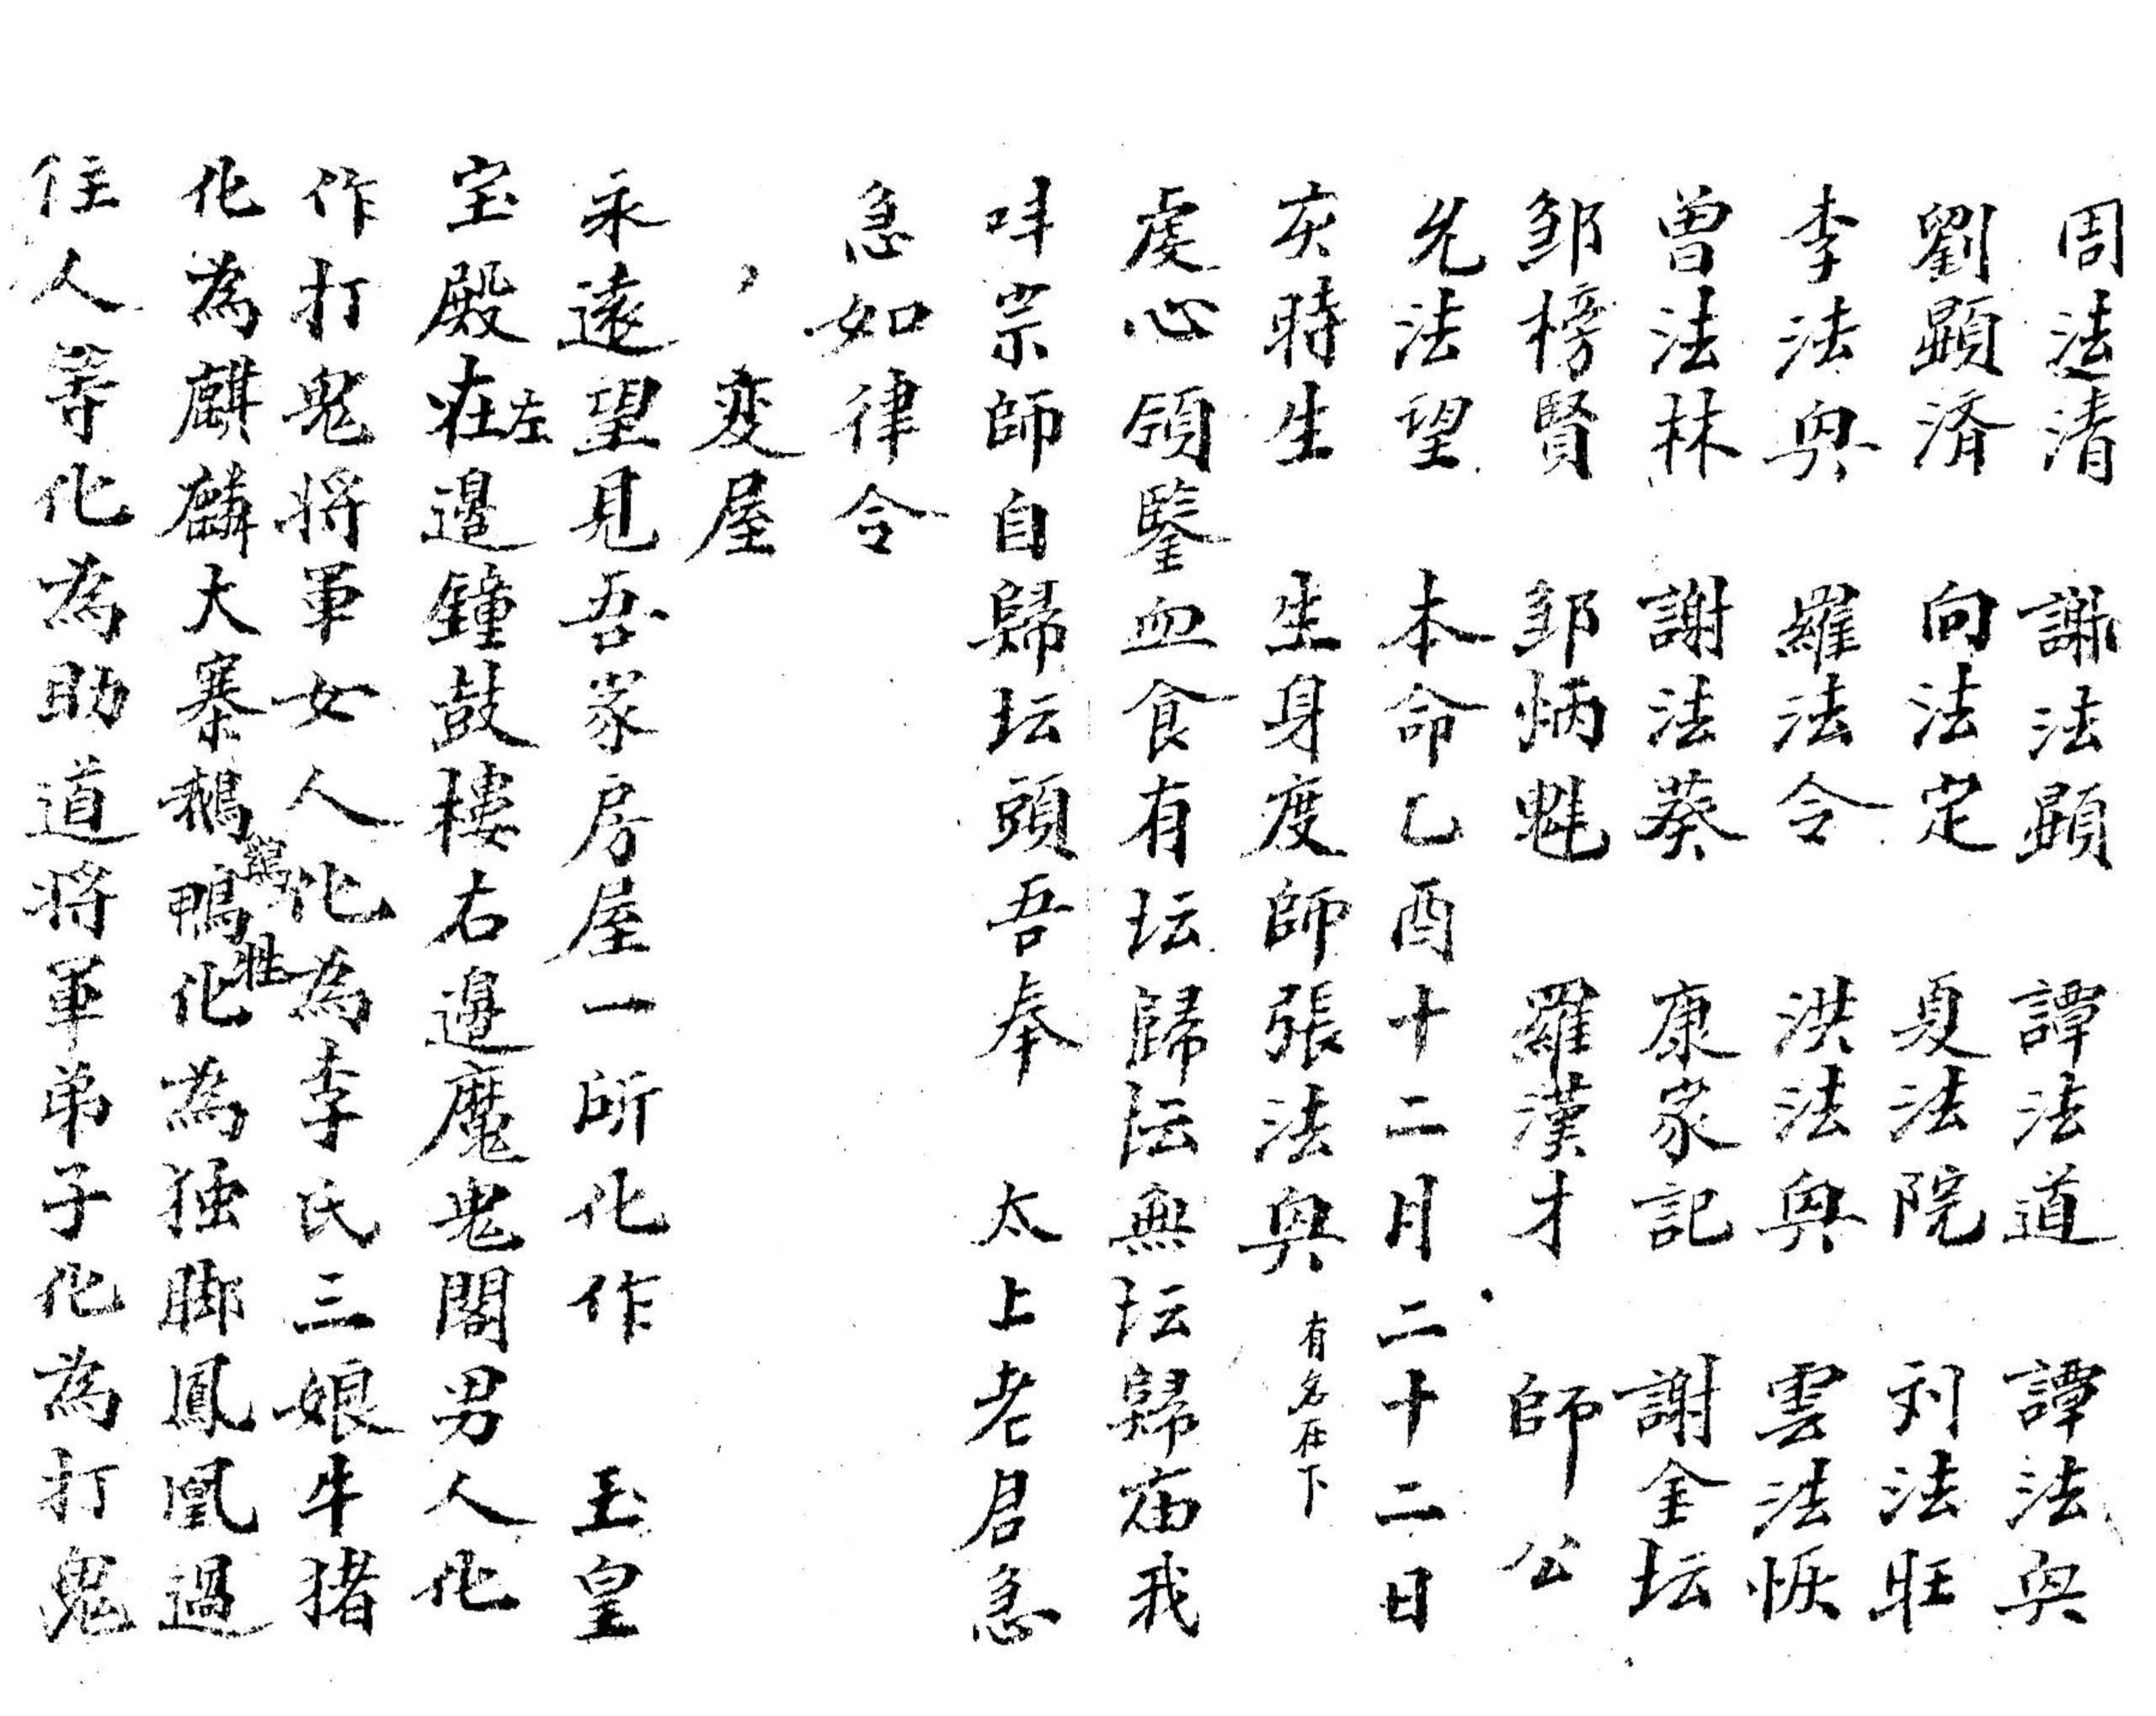 周法清 謝法顕 譚法道 譚法興
劉顕済 向法定 夏法院 刘法旺
李法興 羅法令 洪法興 雲法恢
曾法林 謝法葵 康家記 謝金坛
邹榜賢 邹炳魁 羅漢才 師公
先法望 本命乙酉十二月二十二日
亥時生 生身度師張法興 有名在下
虔心領鑒血食有坛歸坛無坛歸庙我
吽宗師自歸坛頭吾奉 太上老君急
急如律令
変屋
永遠望見吾家房屋一所化作 玉皇
宝殿在左邊鐘鼓樓右邊魔鬼閣男人化
作打鬼将軍女人化為李氏三娘牛猪
化為麒麟大寨鵝鴨牲化為独脚鳳凰過
往人等化為助道将軍弟子化為打鬼